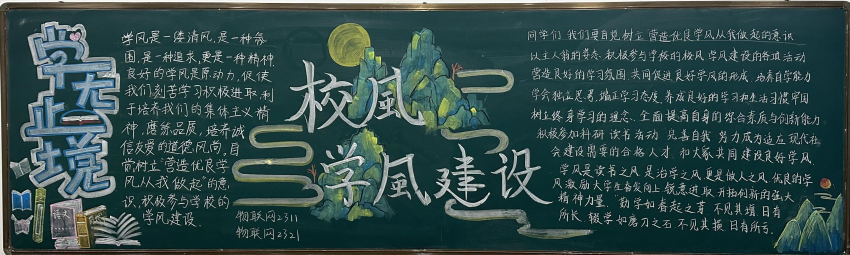 学无止境
学风是一缕清风,是一种氛
围,是一种追求,更是一种精神
良好的学风是原动力,促使
我们刻苦学习积极进取,利
于培养我们的集体主义精
神,磨炼品质,培养诚
信友爱的道德风尚,自
觉树立"营造优良学
风从我做起"的意
识,积极参与学校的
学风建设.
物联网2311
物联网2321
校風
学風建设
同学们,我们要自觉树立营造优良学风从我做起的意识
以主人翁的姿态,积极参与学校的校风学风建设的各项活动
营造良好的学习氛围,共同促进良好学风的形成,培养自学能力
学会独立思考,端正学习态度,养成良好的学习和生活习惯,牢固
树立终身学习的理念,全面提高自身的综合素质与创新能力.
积极参加科研,读书活动,兄善自我,努力成为适应现代社
会建设需要的合格人才,和大家共同建设良好学风
学风是读书之风,是治学之风,更是做人之风,优良的学
风激励大学生奋发向上,锐意进取,开拓创新的强大
精神力量."勤学如春起之芽,不见其增,日有
所长,辍学如磨刀之石,不见其损,日有所亏.
语文